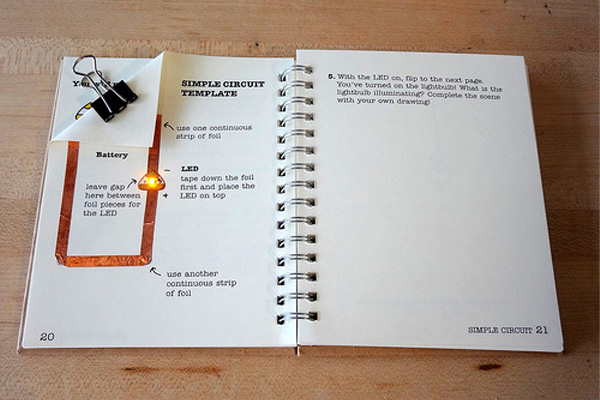 SIMPLE CIRCUIT
TEMPLATE
use one continuous
strip of foil
Battery
LED
tape down the foil
first and place the
LED on top
-
+
leave gap
here between
foil pieces for
the LED
use another
continuous strip
of foil
20
5. With the LED on, flip to the next page.
You've turned on the lightbulb! What is the
lightbulb illuminating? Complete the scene
with your own drawing!
SIMPLE CIRCUIT 21